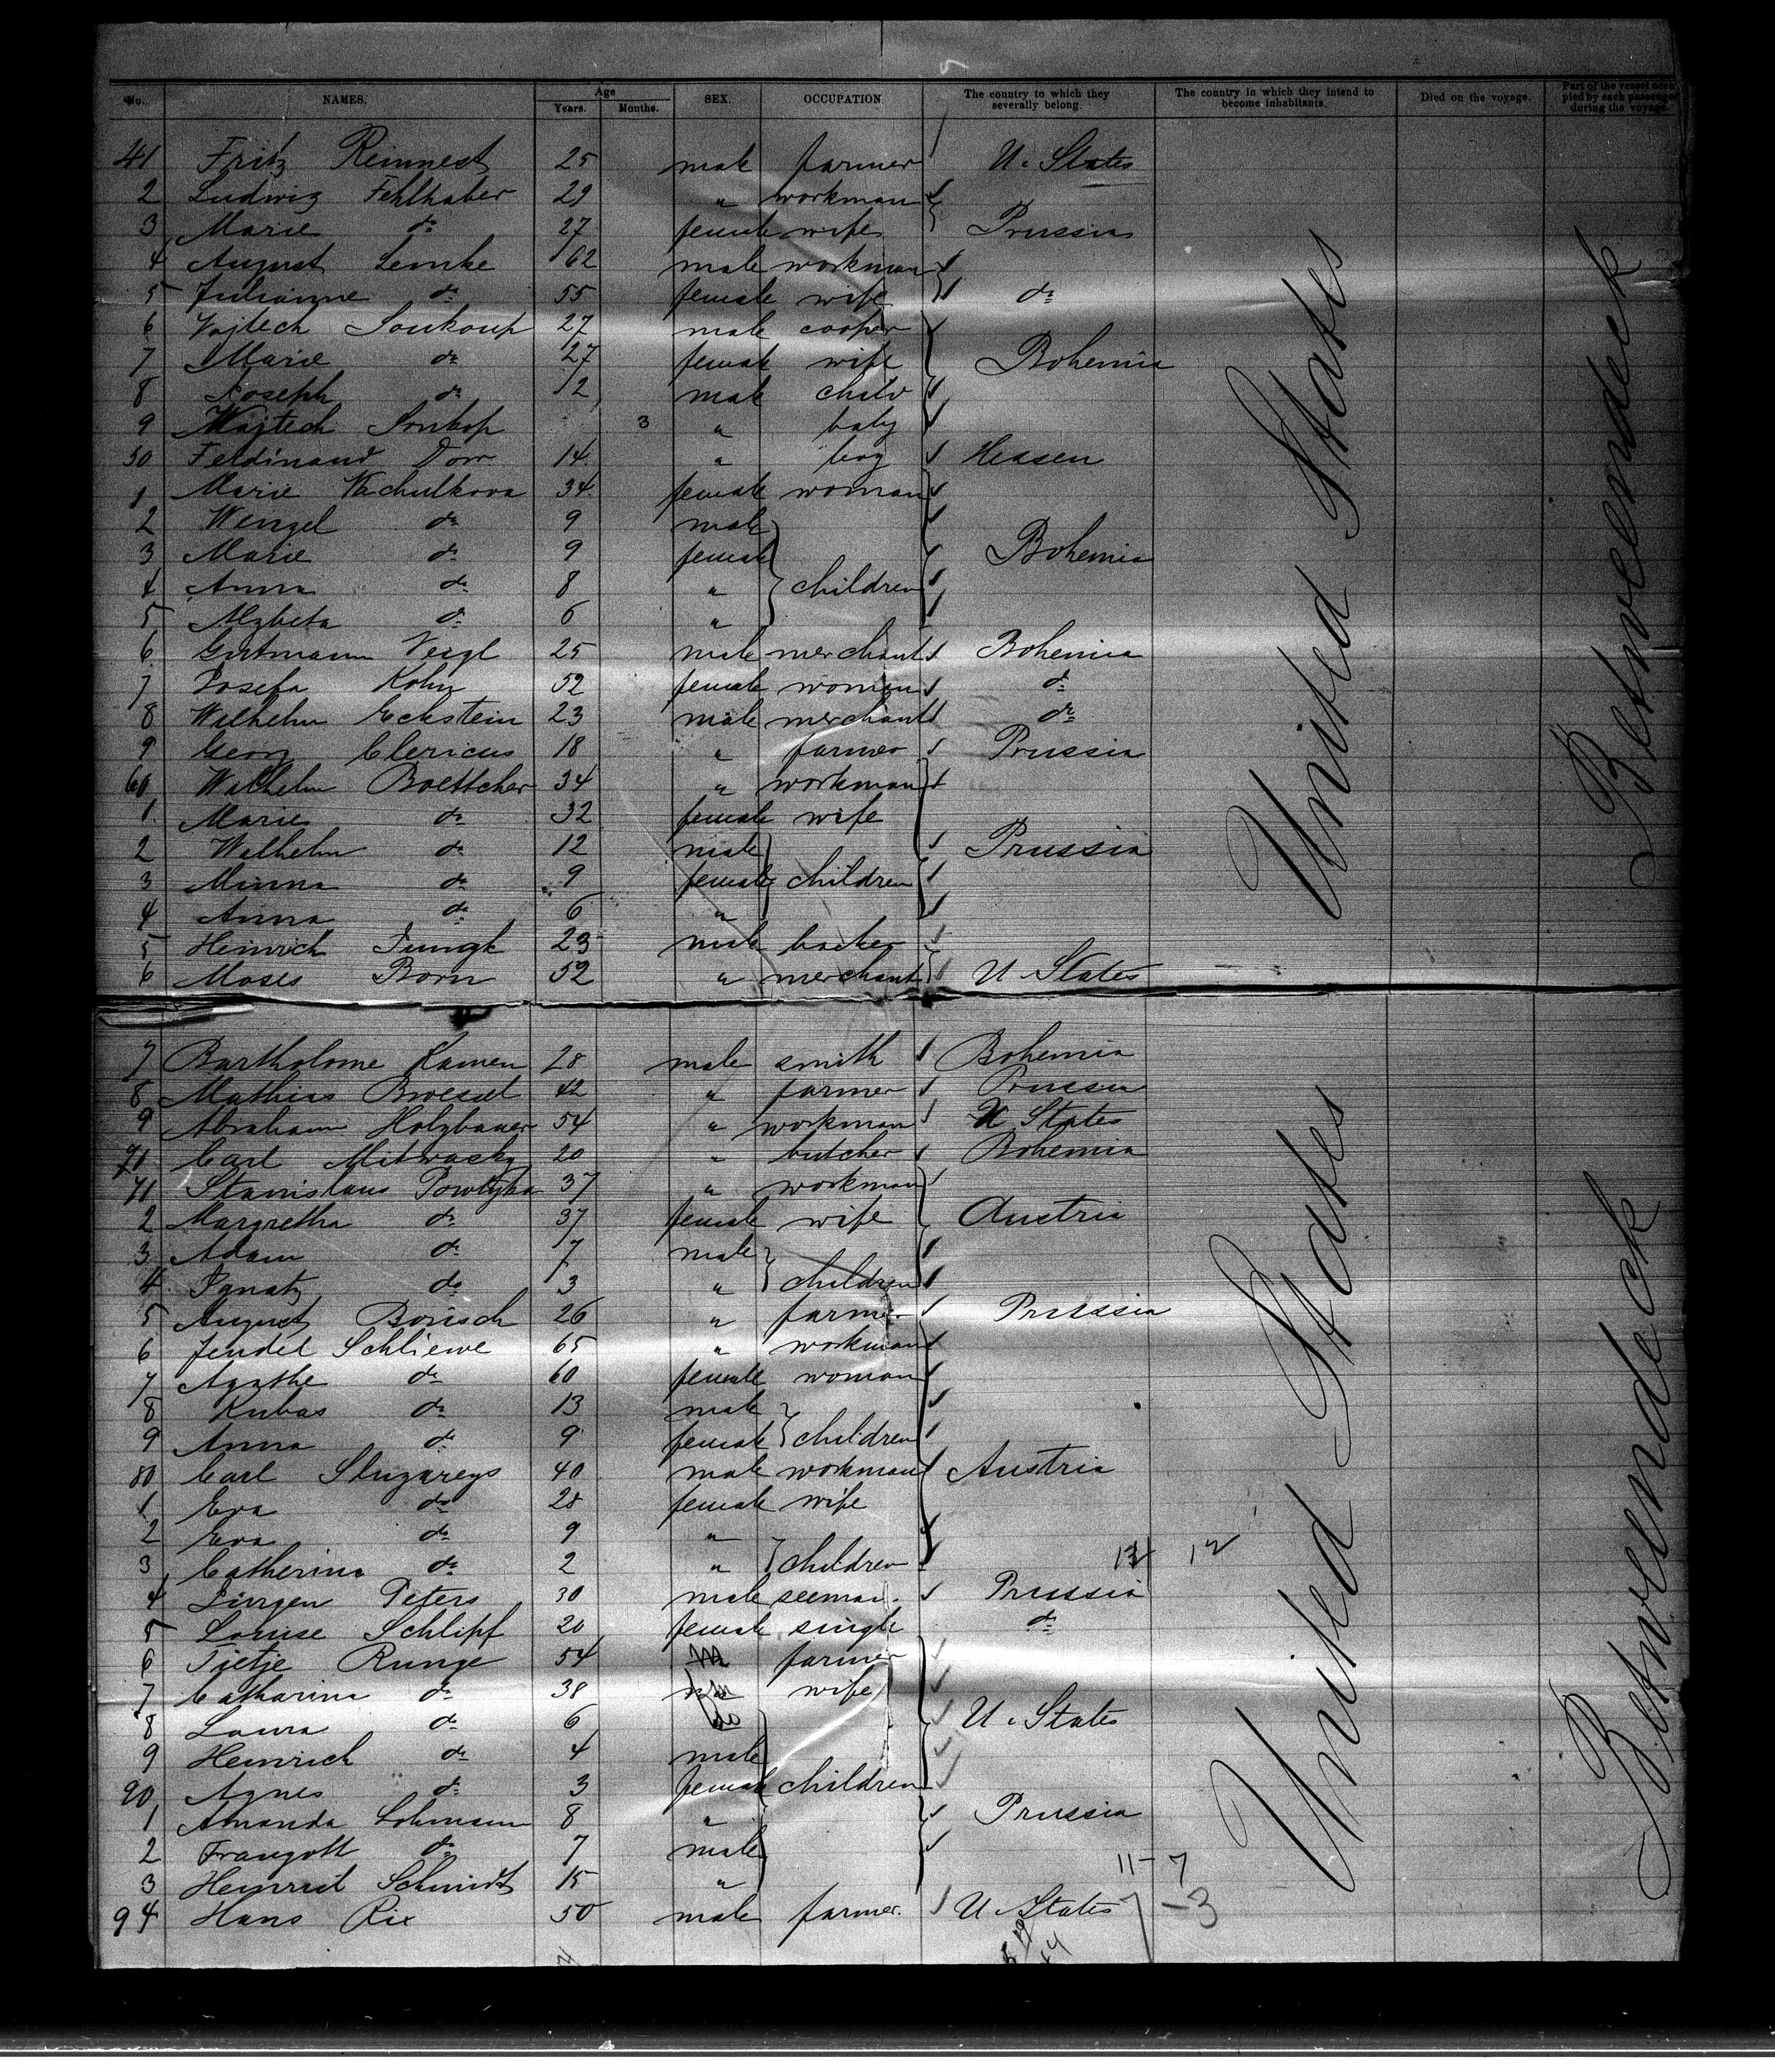 No. NAMES. Age Years. Months. SEX. OCCUPATION. The country to which they severally belong. The country in which they intend to become inhabitants. Died on the voyage. Part of the vessel occupied by each passenger during the voyage.
41 Fritz Reinnest 25 male farmer U. States
2 Ludwig Fehlhaber 29 " workman
3 Marie do 27 female wife Prussia
4 August Lemke 62 male workman
5 Julianne do 55 female wife do
6 Vojtech Soukoup 27 male cooper
7 Marie do 27 female wife Bohemia
8 Joseph do 2 male child
9 Wojtech Soukop 3 " baby
50 Ferdinand Dorr 14 " boy Hessen
1 Marie Vachulkova 34 female woman
2 Wenzel do 9 male
3 Marie do 9 female Bohemia
4 Anna do 8 " children
5 Alzbeta do 6 "
6 Gutmann Veigl 25 male merchant Bohemia
7 Josefa Kohn 52 female woman do
8 Wilhelm Eckstein 23 male merchant do
9 Georg Clericus 18 " farmer Prussia
60 Wilhelm Boettcher 34 " workman
1 Marie do 32 female wife
2 Wilhelm do 12 male Prussia
3 Minna do 9 female children
4 Anna do 6 "
5 Heinrich Jungk 23 male backer
6 Moses Born 52 " merchant U States
United States
Betweendeck
7 Bartholome Kamen 28 male smith Bohemia
8 Mathias 42 " farmer Prussia
9 Abraham Holzbauer 54 " workman U States
Carl 20 " butcher Bohemia
71 Stanislaus 37 " workman
2 Margretha do 37 female wife Austria
3 Adam do 7 male
4 Ignatz do 3 " children
5 August Borisch 26 " farmer Prussia
6 Jendel Schliewe 65 " workman
7 Agathe do 60 female woman
8 Kubas do 13 male
9 Anna do 9 female children
80 Carl 40 male workman Austria
1 Eva do 28 female wife
2 Eva do 9 "
3 Catherina do 2 " children 12
4 Jürgen Peters 30 male seeman. Prussia
5 Louise Schlipf 20 female single do
6 Tjetje Runge 54 farmer
7 Catharina do 38 wife
8 Laura do 6 do U. States
9 Heinrich do 4 male
90 Agnes do 3 female children
1 Amanda Lohmann 8 " Prussia
2 Traugott do 7 male
3 Heinrich Schmidt 15 " 11-7
94 Hans Rix 50 male farmer. U. States -3
United States
Betweendeck